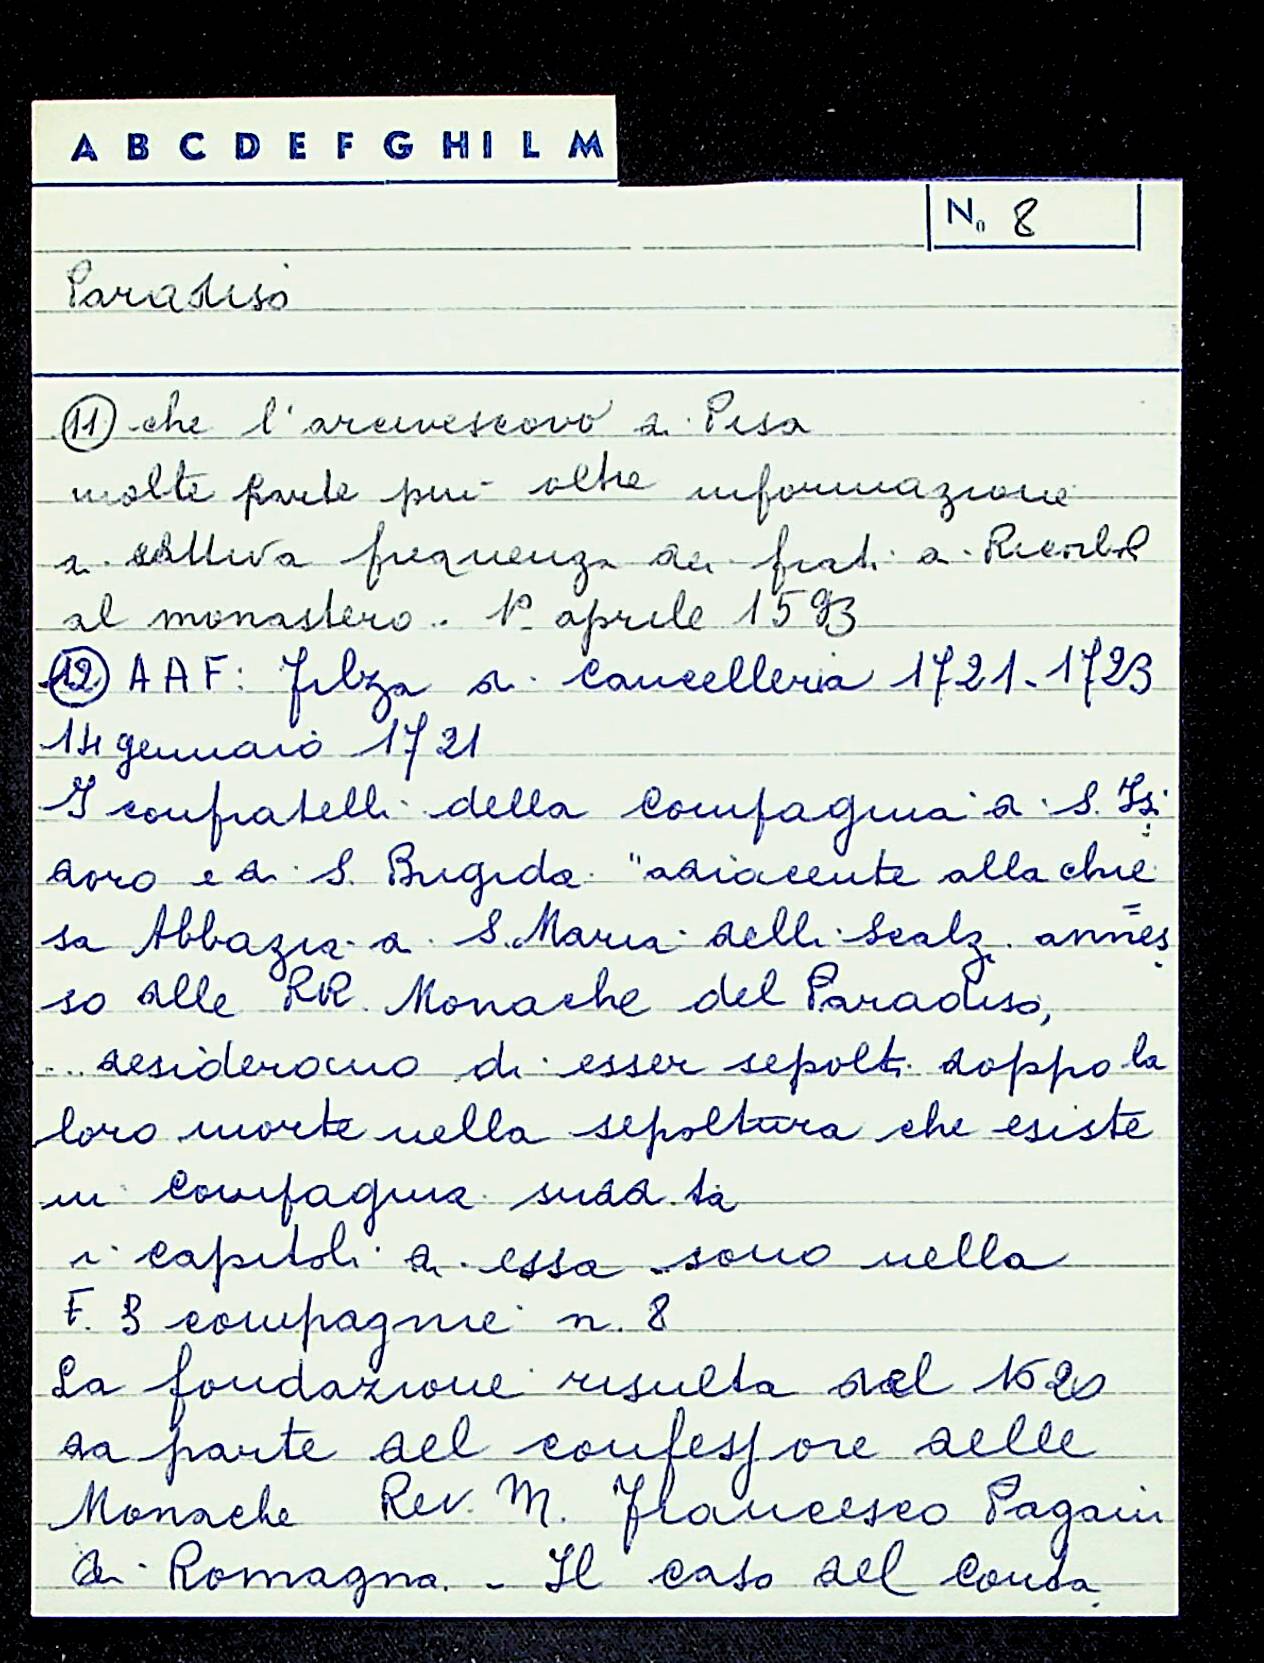 A B C D E F G H I L M
No 8
Paradiso
(11) che l'arcivescovo di Pisa
molte parte più oltre informazione
di cattiva frequenza dei frati a
al monastero. 1° aprile 1593
(12) AAF: Filza di Cancelleria 1721-1723
14 gennaio 1721
I confratelli della Compagnia di S. Isi
doro e di S. Brigida "adiacente alla chie
sa Abbazia di S. Maria delli Scalzi annes
so alle RR. Monache del Paradiso,
... desiderano di esser sepolti doppo la
loro morte nella sepoltura che esiste
in Compagnia sudd.ta
i capitoli di essa sono nella
F. 3 compagnie n. 8
La fondazione risulta del 1620
da parte del confessore delle
Monache Rev. M. Francesco Pagani
di Romagna. - Il caso del Conta